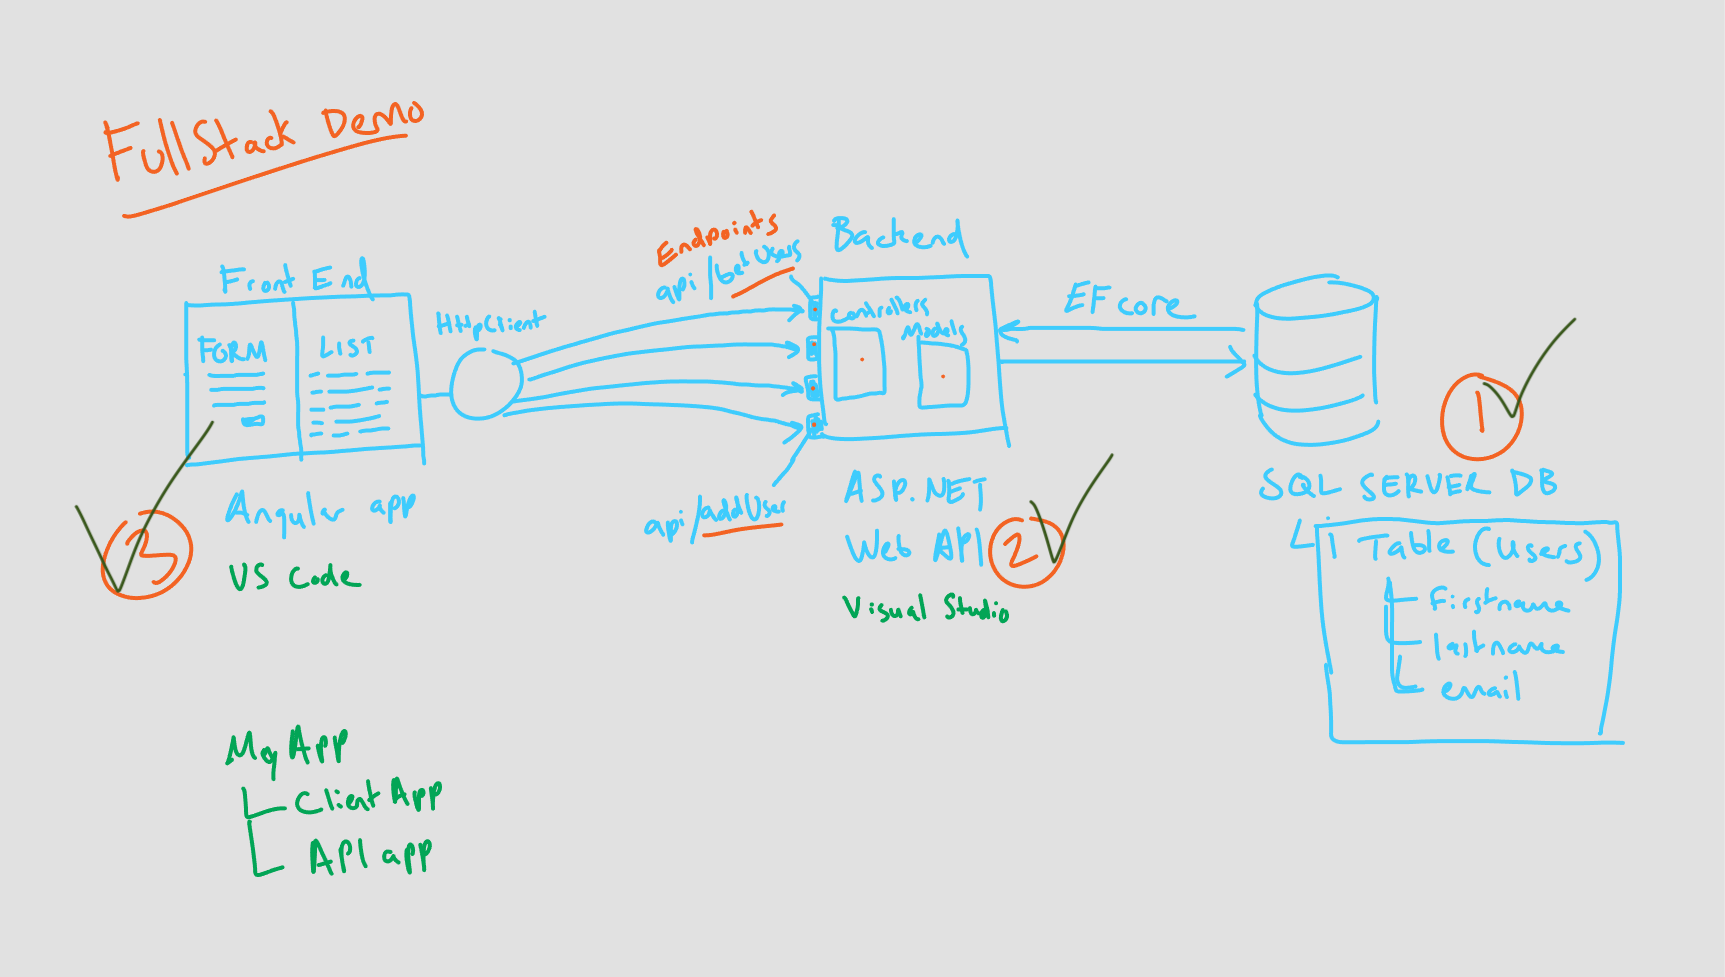 FullStack Demo
Front End
FORM
LIST
Angular app
3
VS Code
HttpClient
Endpoints
api/GetUsers
api/addUser
Backend
Controllers
Models
ASP.NET
Web API
2
Visual Studio
EF core
1
SQL SERVER DB
1 Table (Users)
Firstname
lastname
email
My App
Client App
API app